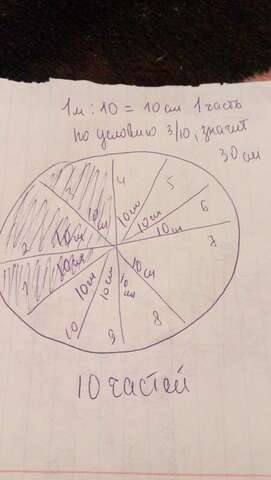 1м : 10 = 10 см 1 часть
по условию 3/10, значит
30 см
3
4
5
10 см
10 см
6
2
10 см
10 см
10 см
7
1
10 см
10 см
10 см
10 см
10 см
10
9
8
10 частей